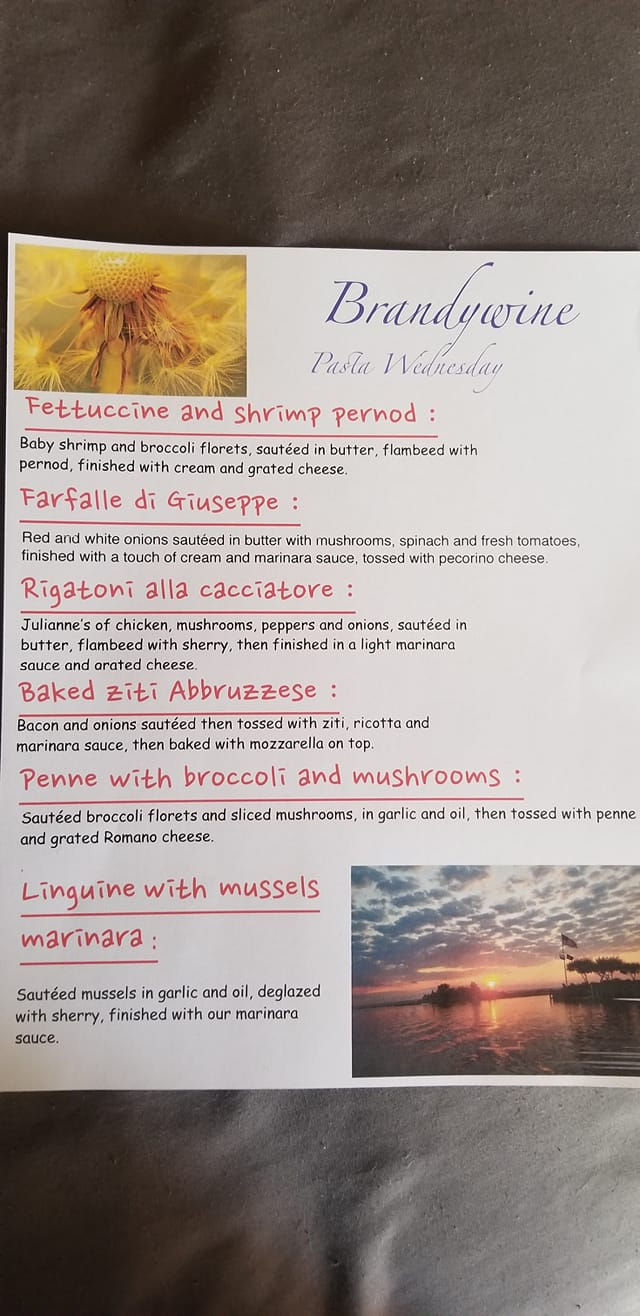 Brandywine
Pasta Wednesday
Fettuccine and shrimp pernod :
Baby shrimp and broccoli florets, sautéed in butter, flambeed with
pernod, finished with cream and grated cheese.
Farfalle di Giuseppe :
Red and white onions sautéed in butter with mushrooms, spinach and fresh tomatoes,
finished with a touch of cream and marinara sauce, tossed with pecorino cheese.
Rigatoni alla cacciatore :
Julianne's of chicken, mushrooms, peppers and onions, sautéed in
butter, flambeed with sherry, then finished in a light marinara
sauce and grated cheese.
Baked ziti Abbruzzese :
Bacon and onions sautéed then tossed with ziti, ricotta and
marinara sauce, then baked with mozzarella on top.
Penne with broccoli and mushrooms :
Sautéed broccoli florets and sliced mushrooms, in garlic and oil, then tossed with penne
and grated Romano cheese.
Linguine with mussels
marinara :
Sautéed mussels in garlic and oil, deglazed
with sherry, finished with our marinara
sauce.